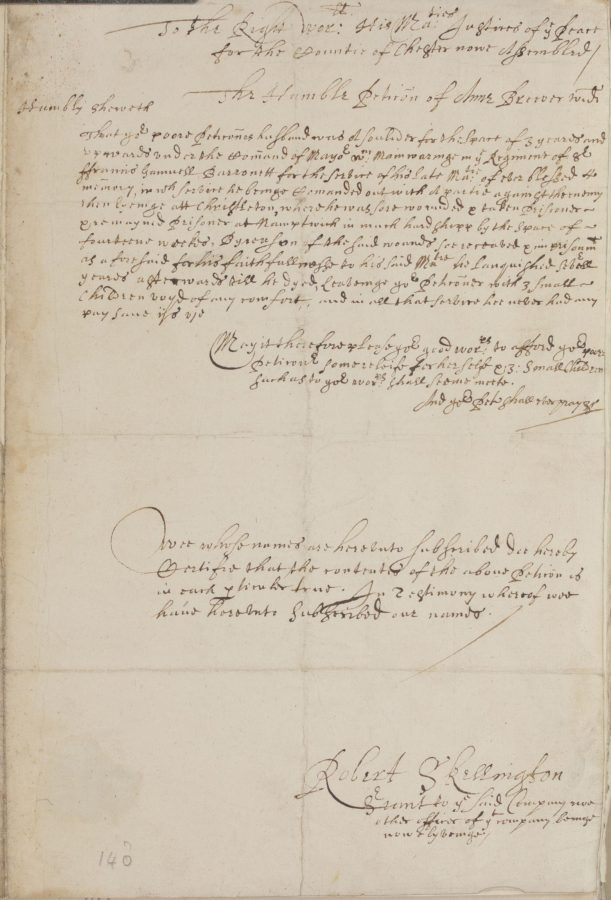 To the Right Wor:ll His Maties Justices of ye Peace
for the Countie of Chester nowe Assembled
The Humble Peticon of Anne Brever widd
Humbly sheweth
That yor poore Peticoner husband was A souldier for the space of 3 yeares and
upwards under the Comand of Mayor Manwaringe in ye Regiment of Sr
ffrancis Gamuell Barronett for the service of his late Matie of ever blessed
memory, in wch service he beinge Comanded out with A partie against the enemy
then beinge att Christleton, where he was sore wounded & taken Prisoner
& remayned Prisoner at Namptwich in much hardshipp by the space of
fourteene weekes, By reason of the said wounds soe receaved & imprisonmt
as aforesaid for his faithfullnesse to his said Matie he Languished
yeares afterwards till he dyed, Leavenge yor Peticoner with 3 small
Children voyd of any comfort, and in all that service hee never had any
pay save
May it therefore please yor good worps to afford yor poore
Peticonr some releife for her selfe & 3: Small Children
such as to yor worps shall seeme meete.
And yor Petr shall ever pray &c
Wee whose names are hereunto subscribed doe hereby
Certifie that the contentes of the above Peticon is
in each pticuler true. In Testimony whereof wee
have hereunto Subscribed our names.
Robert Skellington
to ye said Company noe
other officer of ye company beinge
now
140